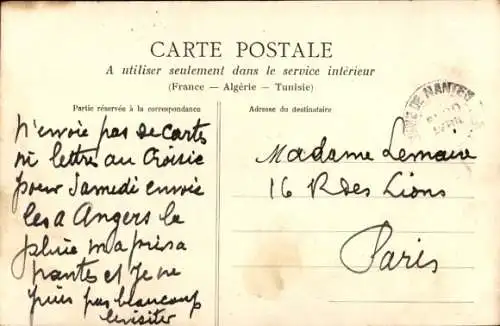 CARTE POSTALE
A utiliser seulement dans le service intérieur
(France — Algérie — Tunisie)
Partie réservée à la correspondance
N'envoie pas de carte
ni lettre au Croisic
pour Samedi envoie
les a Angers la
pluie m a pris a
nantes et je ne
puis pas beaucoup
levisiter
Adresse du destinataire
DE NANTES
Madame Lemaire
16 R des Lions
Paris